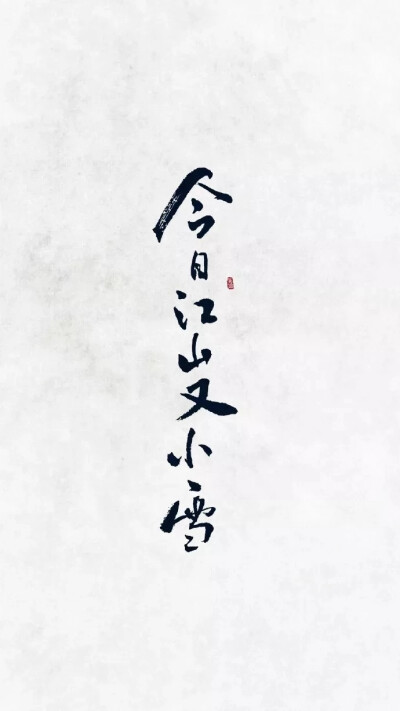 今日江山又小雪